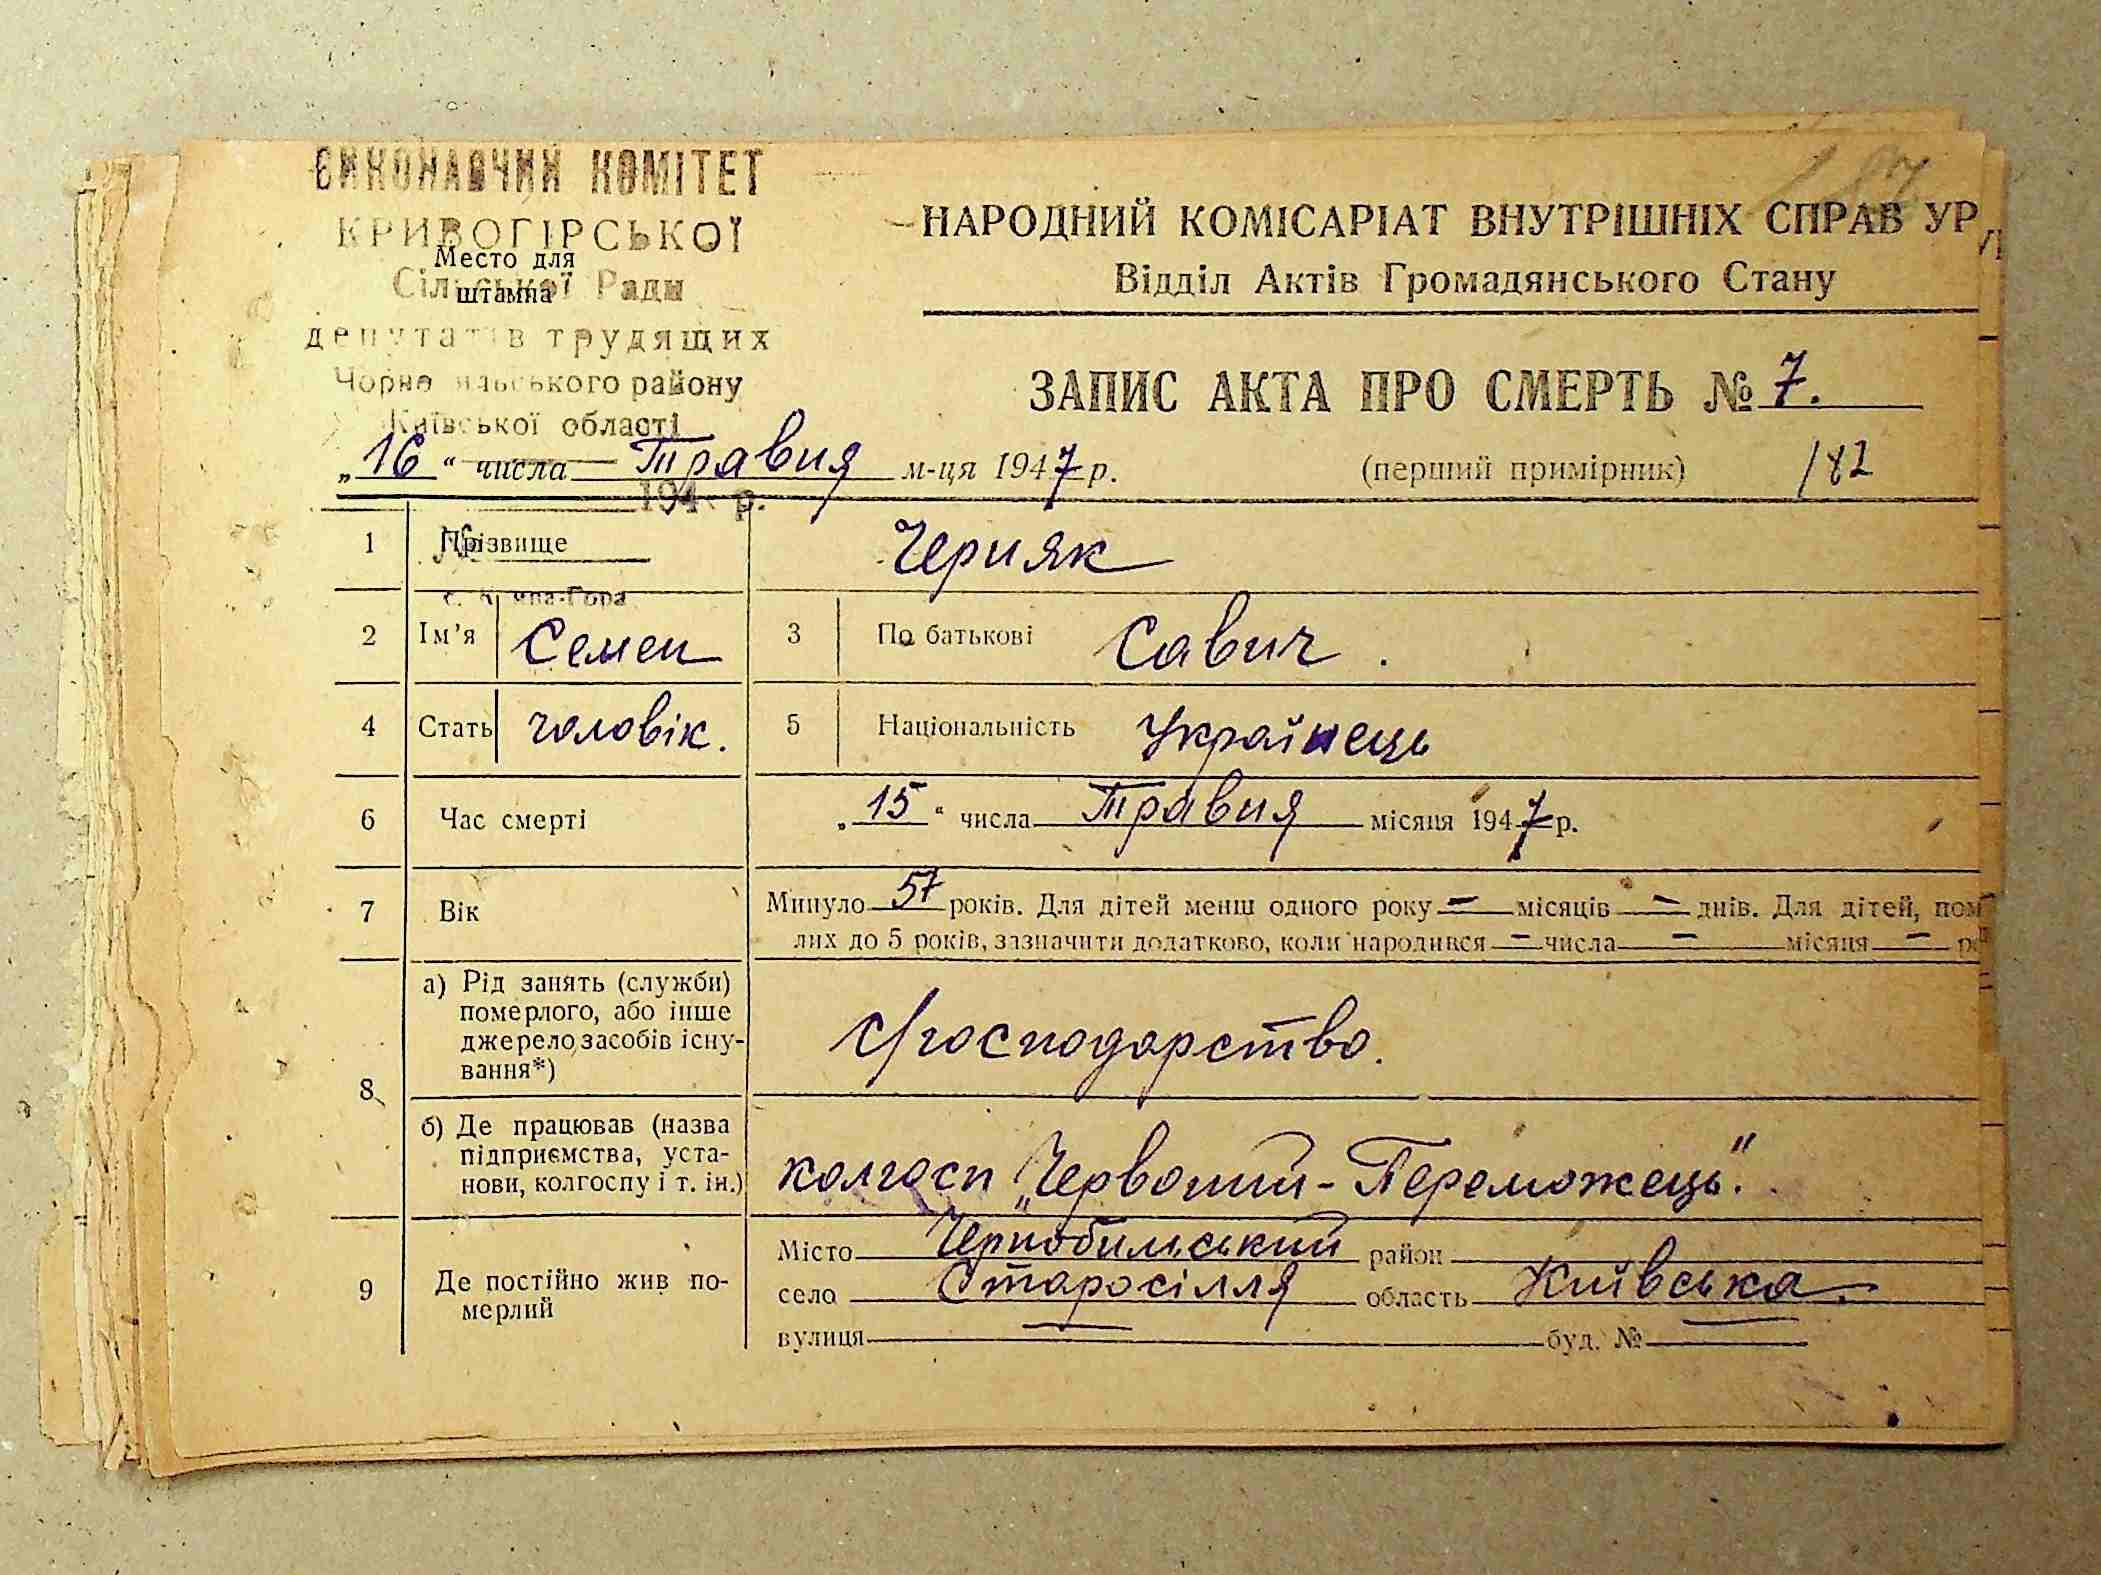 ВИКОНАВЧИЙ КОМІТЕТ
КРИВОГІРСЬКОЇ
Место для
штампа
Сільської Ради
депутатів трудящих
Чорнобильського району
Київської області
194 р.
с. Крива-Гора
187
НАРОДНИЙ КОМІСАРІАТ ВНУТРІШНІХ СПРАВ УР
Відділ Актів Громадянського Стану
ЗАПИС АКТА ПРО СМЕРТЬ № 7.
„16“ числа Травня м-ця 1947 р.
(перший примірник) 182
1 Прізвище Черняк
2 Ім'я Семен 3 По батькові Савич.
4 Стать чоловік. 5 Національність Українець
6 Час смерті „15“ числа Травня місяця 1947 р.
7 Вік Минуло 57 років. Для дітей менш одного року — місяців — днів. Для дітей, пом
лих до 5 років, зазначити додатково, коли народився — числа — місяця — р
8 а) Рід занять (служби)
померлого, або інше
джерело засобів існу-
вання*)
с/господарство.
б) Де працював (назва
підприємства, уста-
нови, колгоспу і т. ін.)
колгосп „Червоний-Переможець".
9 Де постійно жив по-
мерлий
Місто Чернобильський район
село Старосілля область Київська.
вулиця буд. №